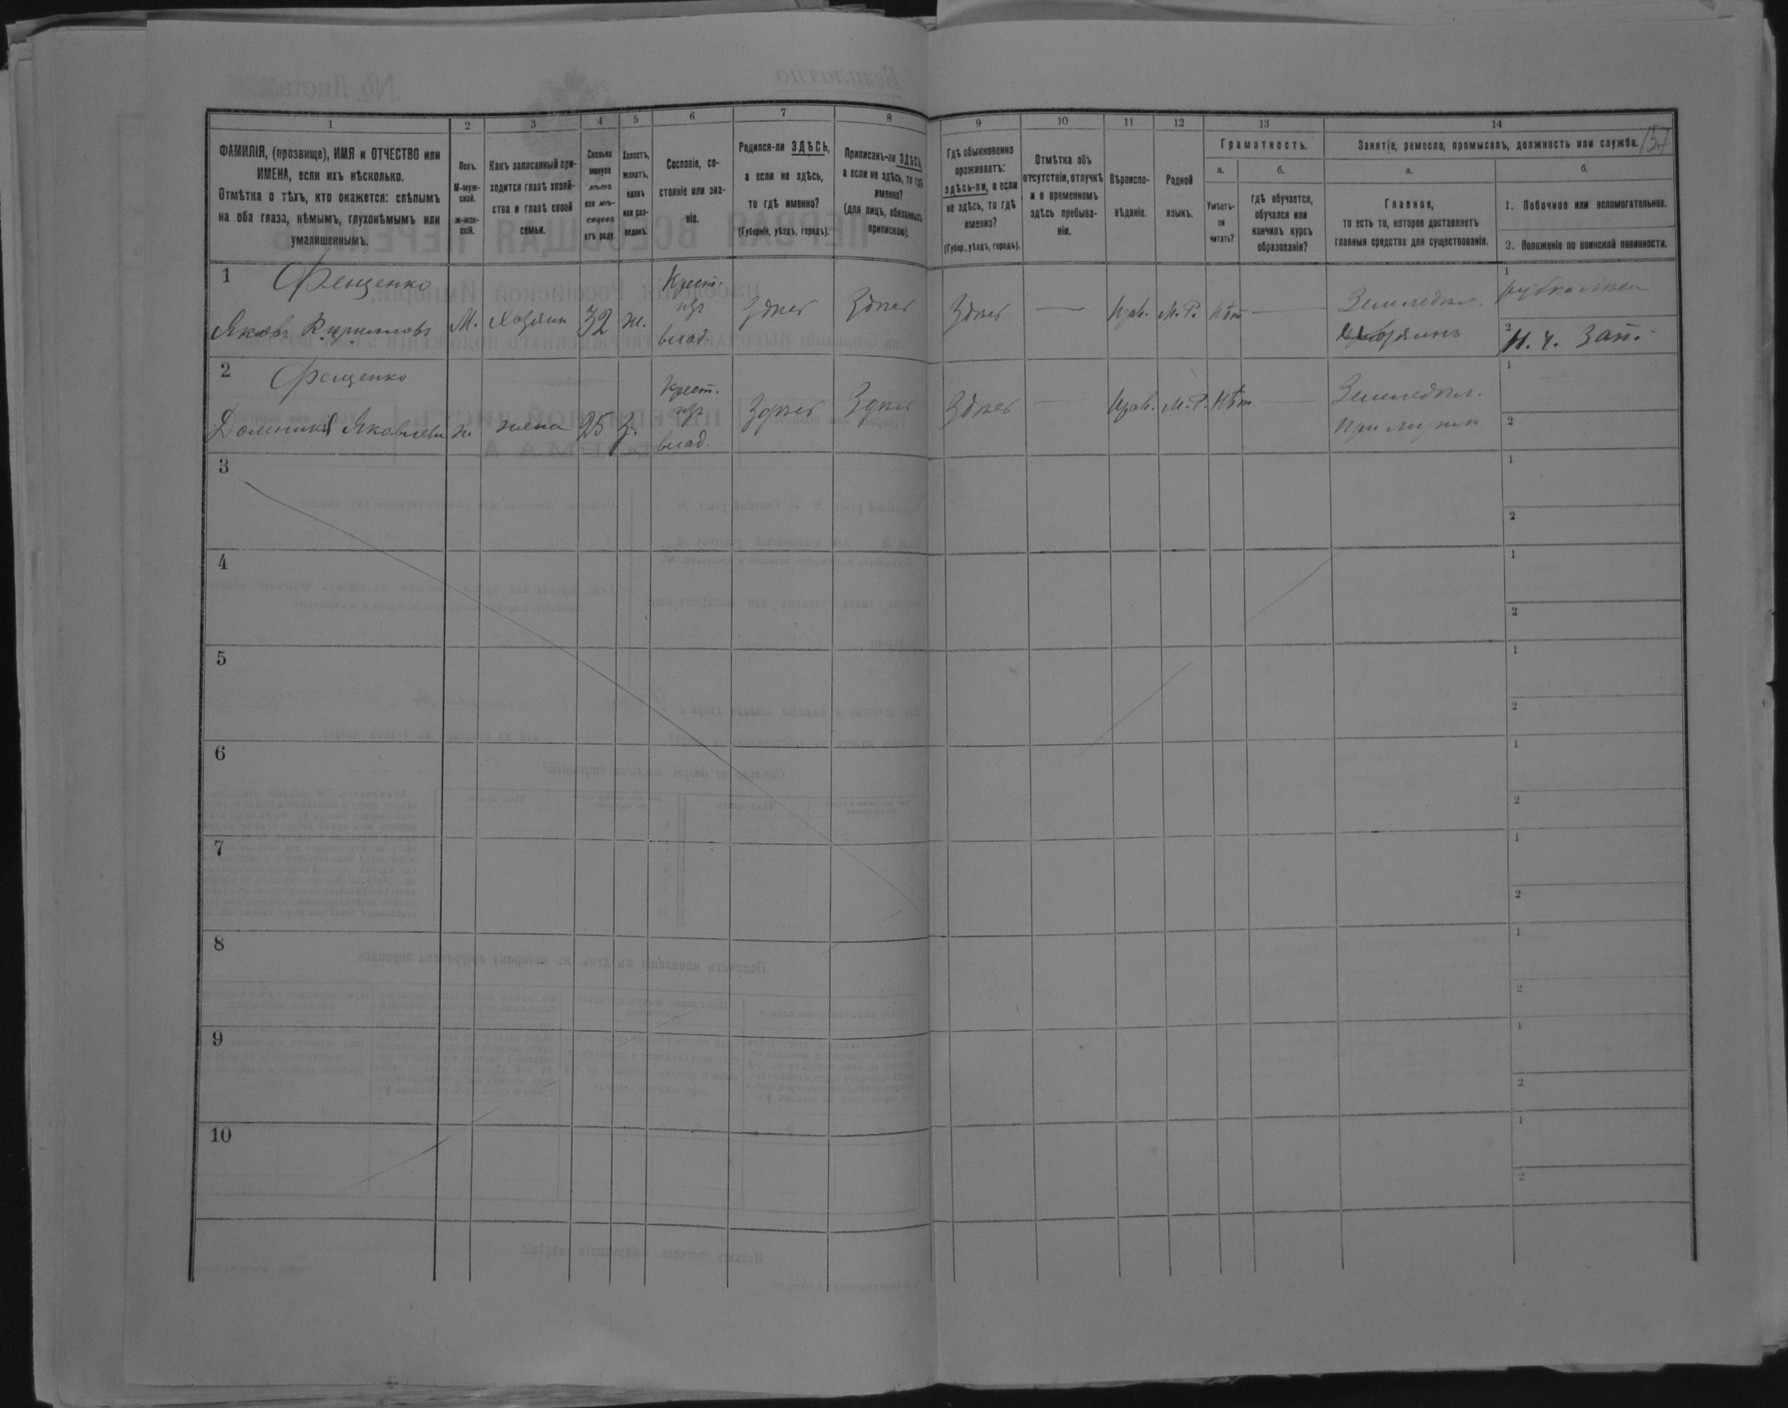 1
2
3
4
5
6
7
8
9
10
11
12
13
14
157
ФАМИЛІЯ, (прозвище), ИМЯ и ОТЧЕСТВО или
ИМЕНА, если ихъ нѣсколько.
Отмѣтка о тѣхъ, кто окажется: слѣпымъ
на оба глаза, нѣмымъ, глухонѣмымъ или
умалишеннымъ.
Полъ.
М-муж-
ской.
ж-жен-
скій.
Какъ записанный при-
ходится главѣ хозяй-
ства и главѣ своей
семьи.
Сколько
минуло
лѣтъ
или мѣ-
сяцевъ
отъ роду.
Холостъ,
женатъ,
вдовъ
или раз-
веденъ.
Сословіе, со-
стояніе или зва-
ніе.
Родился-ли ЗДѢСЬ,
а если не здѣсь,
то гдѣ именно?
(Губернія, уѣздъ, городъ).
Приписанъ-ли ЗДѢСЬ,
а если не здѣсь, то гдѣ
именно?
(для лицъ, обязанныхъ
припискою).
Гдѣ обыкновенно
проживаетъ:
здѣсь-ли, а если
не здѣсь, то гдѣ
именно?
(Губер., уѣздъ, городъ).
Отмѣтка объ
отсутствіи, отлучкѣ
и о временномъ
здѣсь пребыва-
ніи.
Вѣроиспо-
вѣданіе.
Родной
языкъ.
Грамотность.
а.
Умѣетъ-
ли
читать?
б.
гдѣ обучается,
обучался или
кончилъ курсъ
образованія?
Занятіе, ремесло, промыселъ, должность или служба.
а.
Главное,
то есть то, которое доставляетъ
главныя средства для существованія.
б.
1. Побочное или вспомогательное.
2. Положеніе по воинской повинности.
1
Фещенко
Яковъ Кириловъ
М.
Хозяин
32
ж.
Крест.
изъ
влад.
Здѣсь
Здѣсь
Здѣсь
—
Прав.
М.Р.
Нѣт
—
Земледѣл.
хозяинъ
1
2
Н. ч. Зап.
2
Фещенко
Яковлева
ж.
жена
25
з.
Крест.
изъ
влад.
Здѣсь
Здѣсь
Здѣсь
—
Прав.
М.Р.
Нѣт
—
Земледѣл.
при мужѣ
1
2
3
1
2
4
1
2
5
1
2
6
1
2
7
1
2
8
1
2
9
1
2
10
1
2